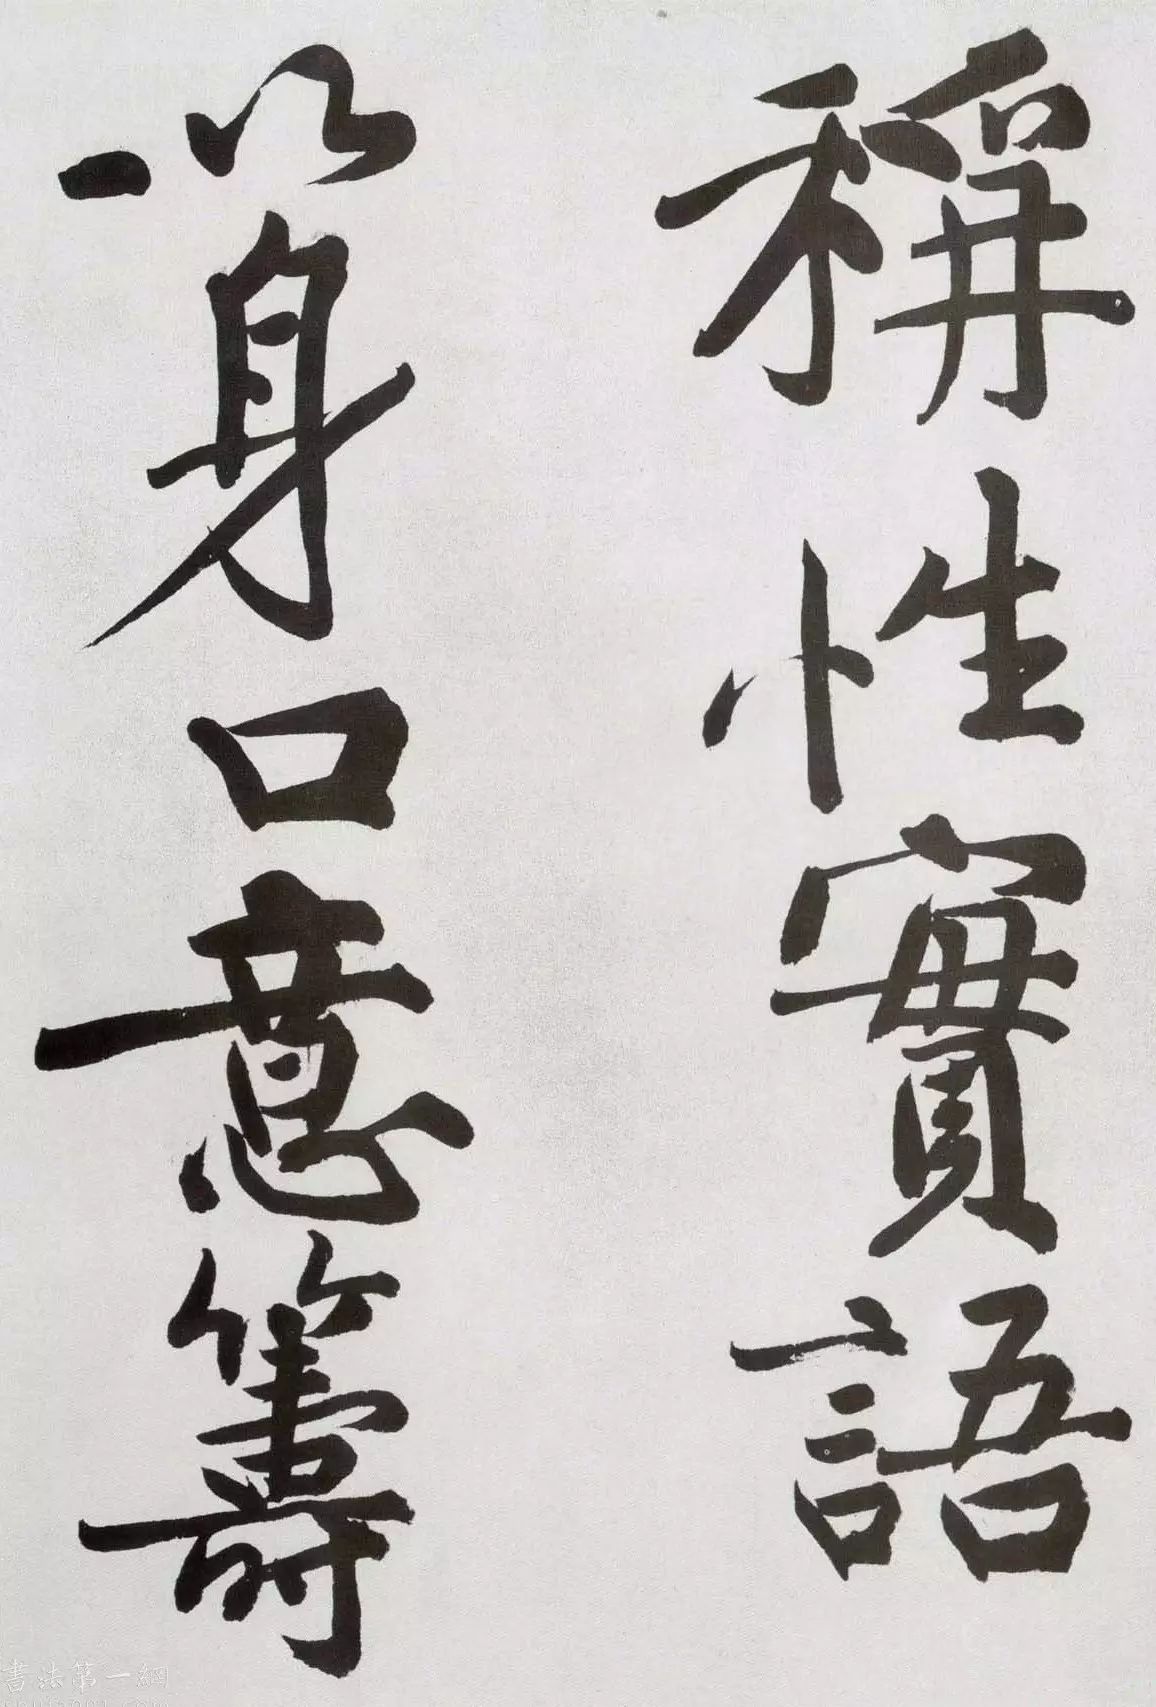 稱性實語
以身口意籌
書法第一網